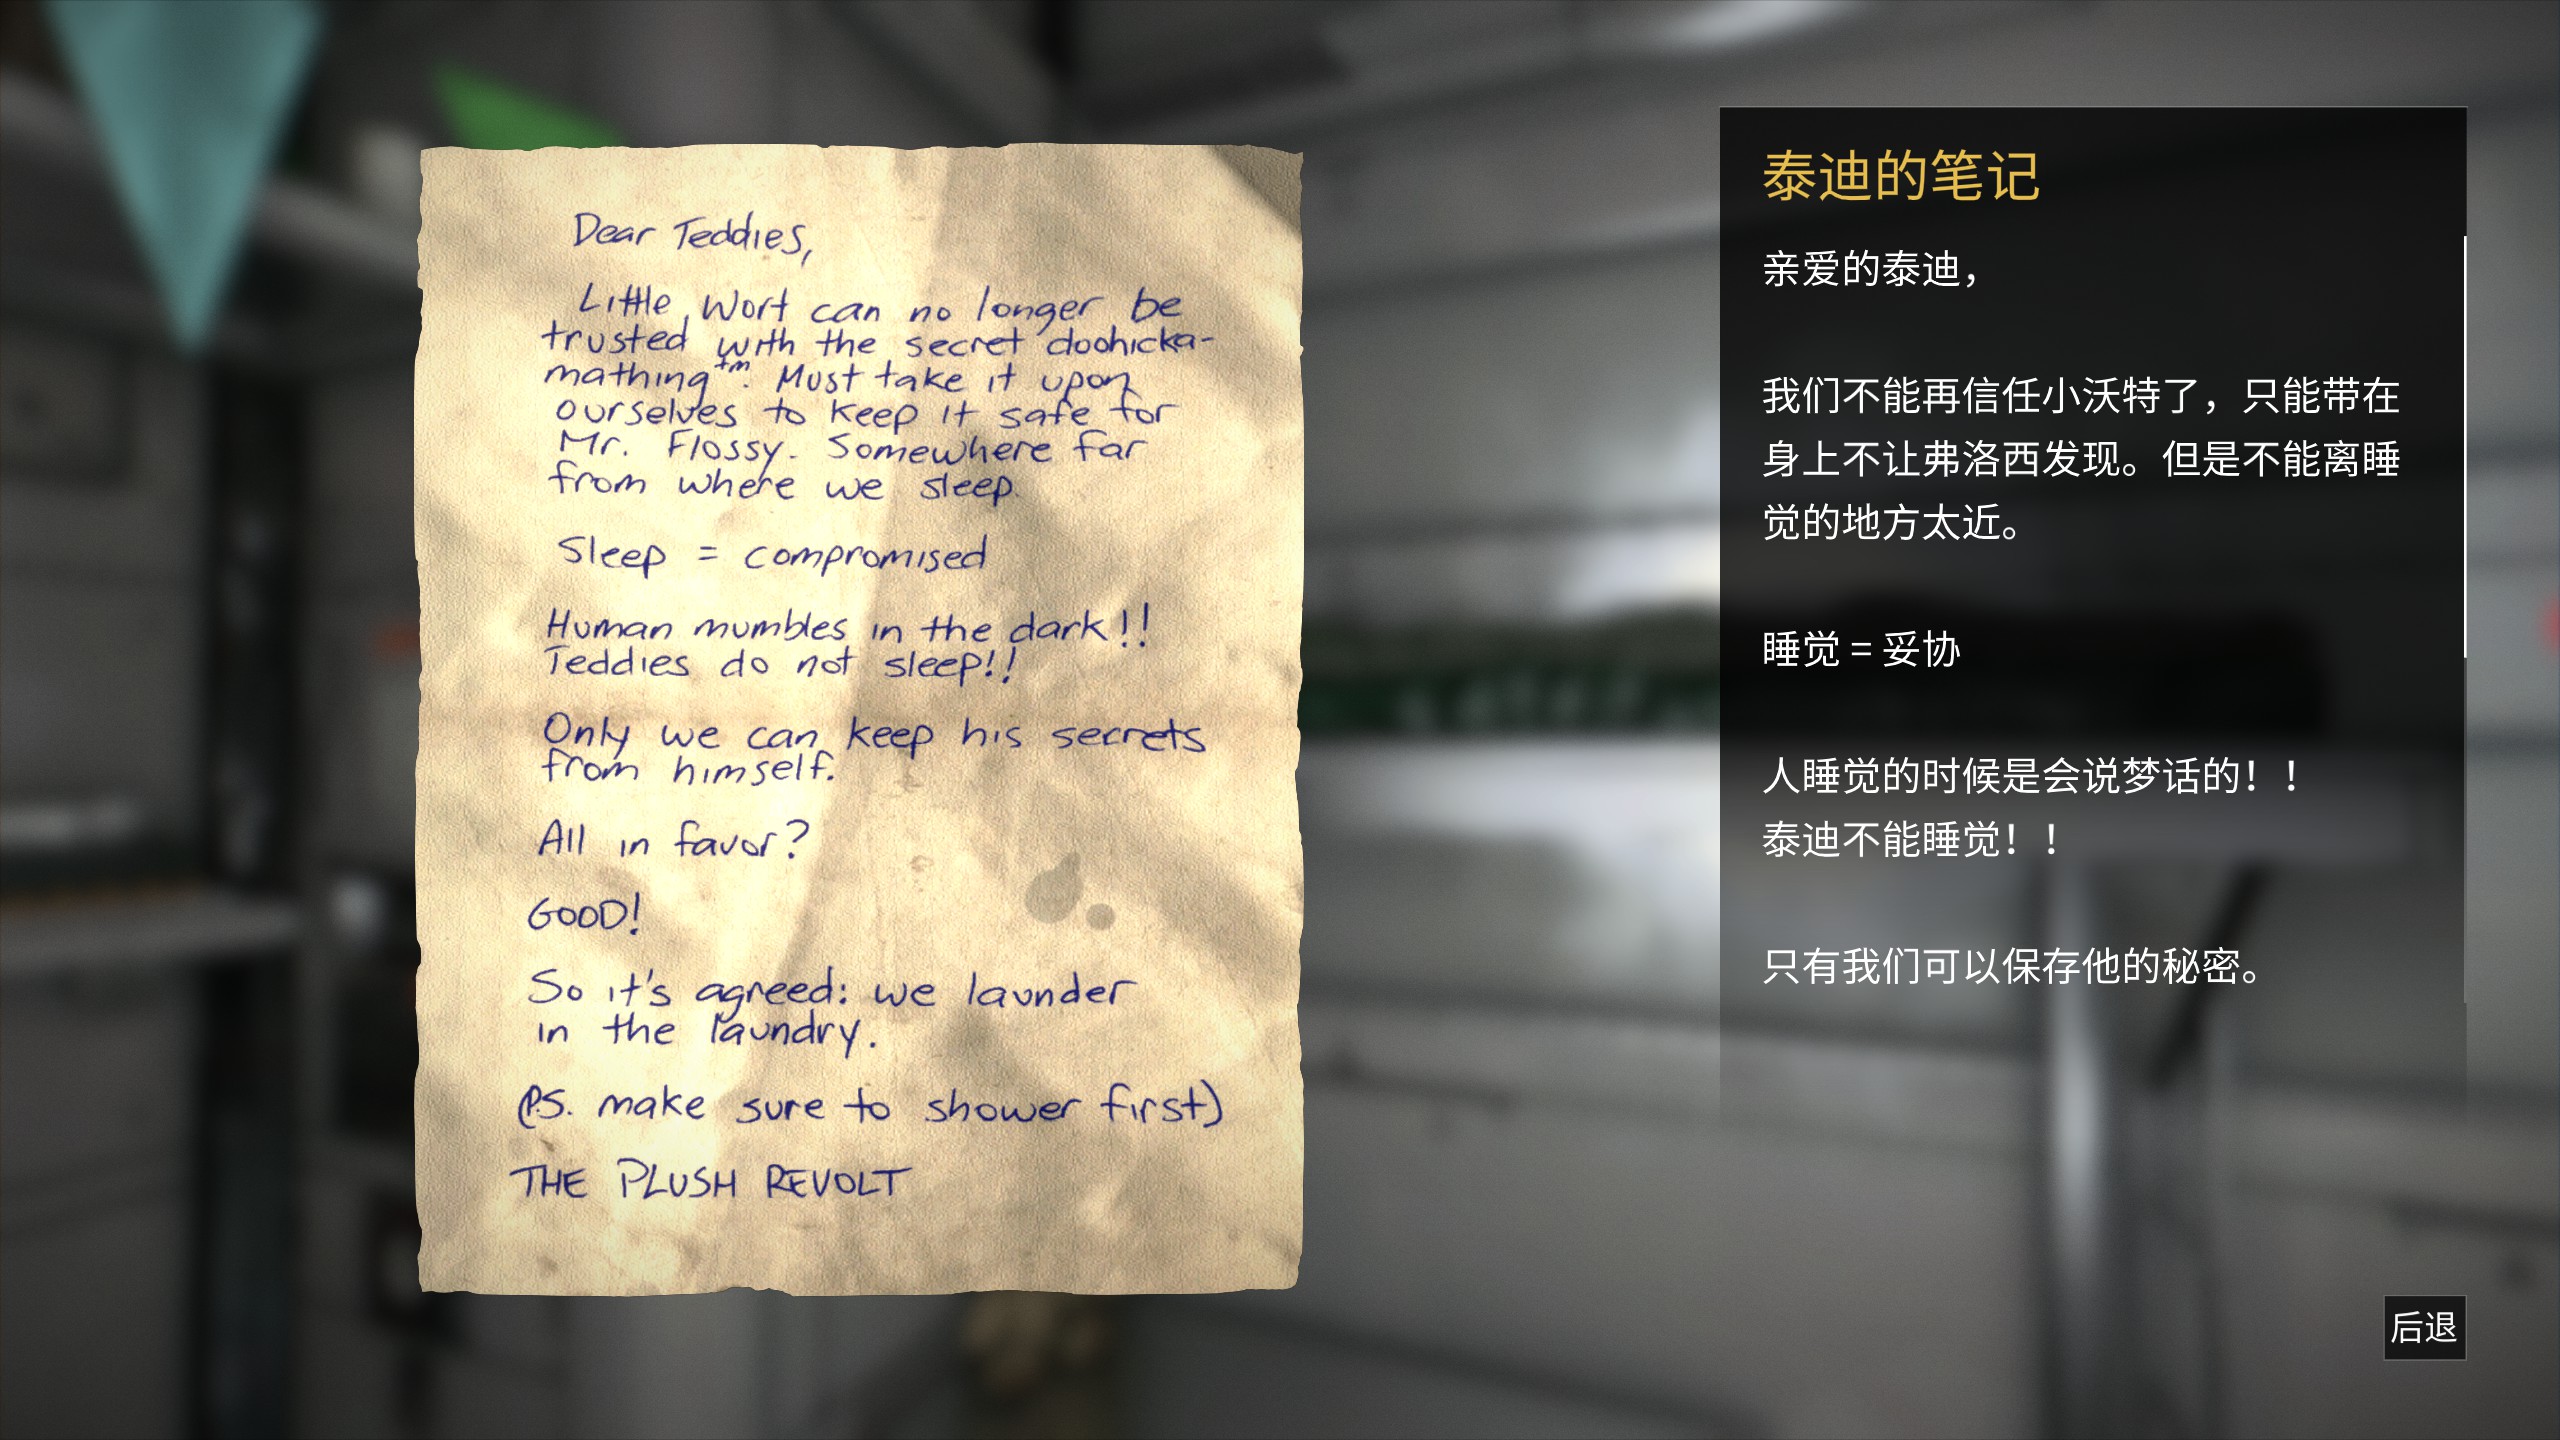 Dear Teddies,
Little Wort can no longer be
trusted with the secret doohicka-
mathing™. Must take it upon
ourselves to keep it safe for
Mr. Flossy. Somewhere far
from where we sleep.
Sleep = compromised
Human mumbles in the dark!!
Teddies do not sleep!!
Only we can keep his secrets
from himself.
All in favor?
GOOD!
So it's agreed: we launder
in the laundry.
(P.S. make sure to shower first)
THE PLUSH REVOLT
泰迪的笔记
亲爱的泰迪，
我们不能再信任小沃特了，只能带在
身上不让弗洛西发现。但是不能离睡
觉的地方太近。
睡觉 = 妥协
人睡觉的时候是会说梦话的！！
泰迪不能睡觉！！
只有我们可以保存他的秘密。
后退